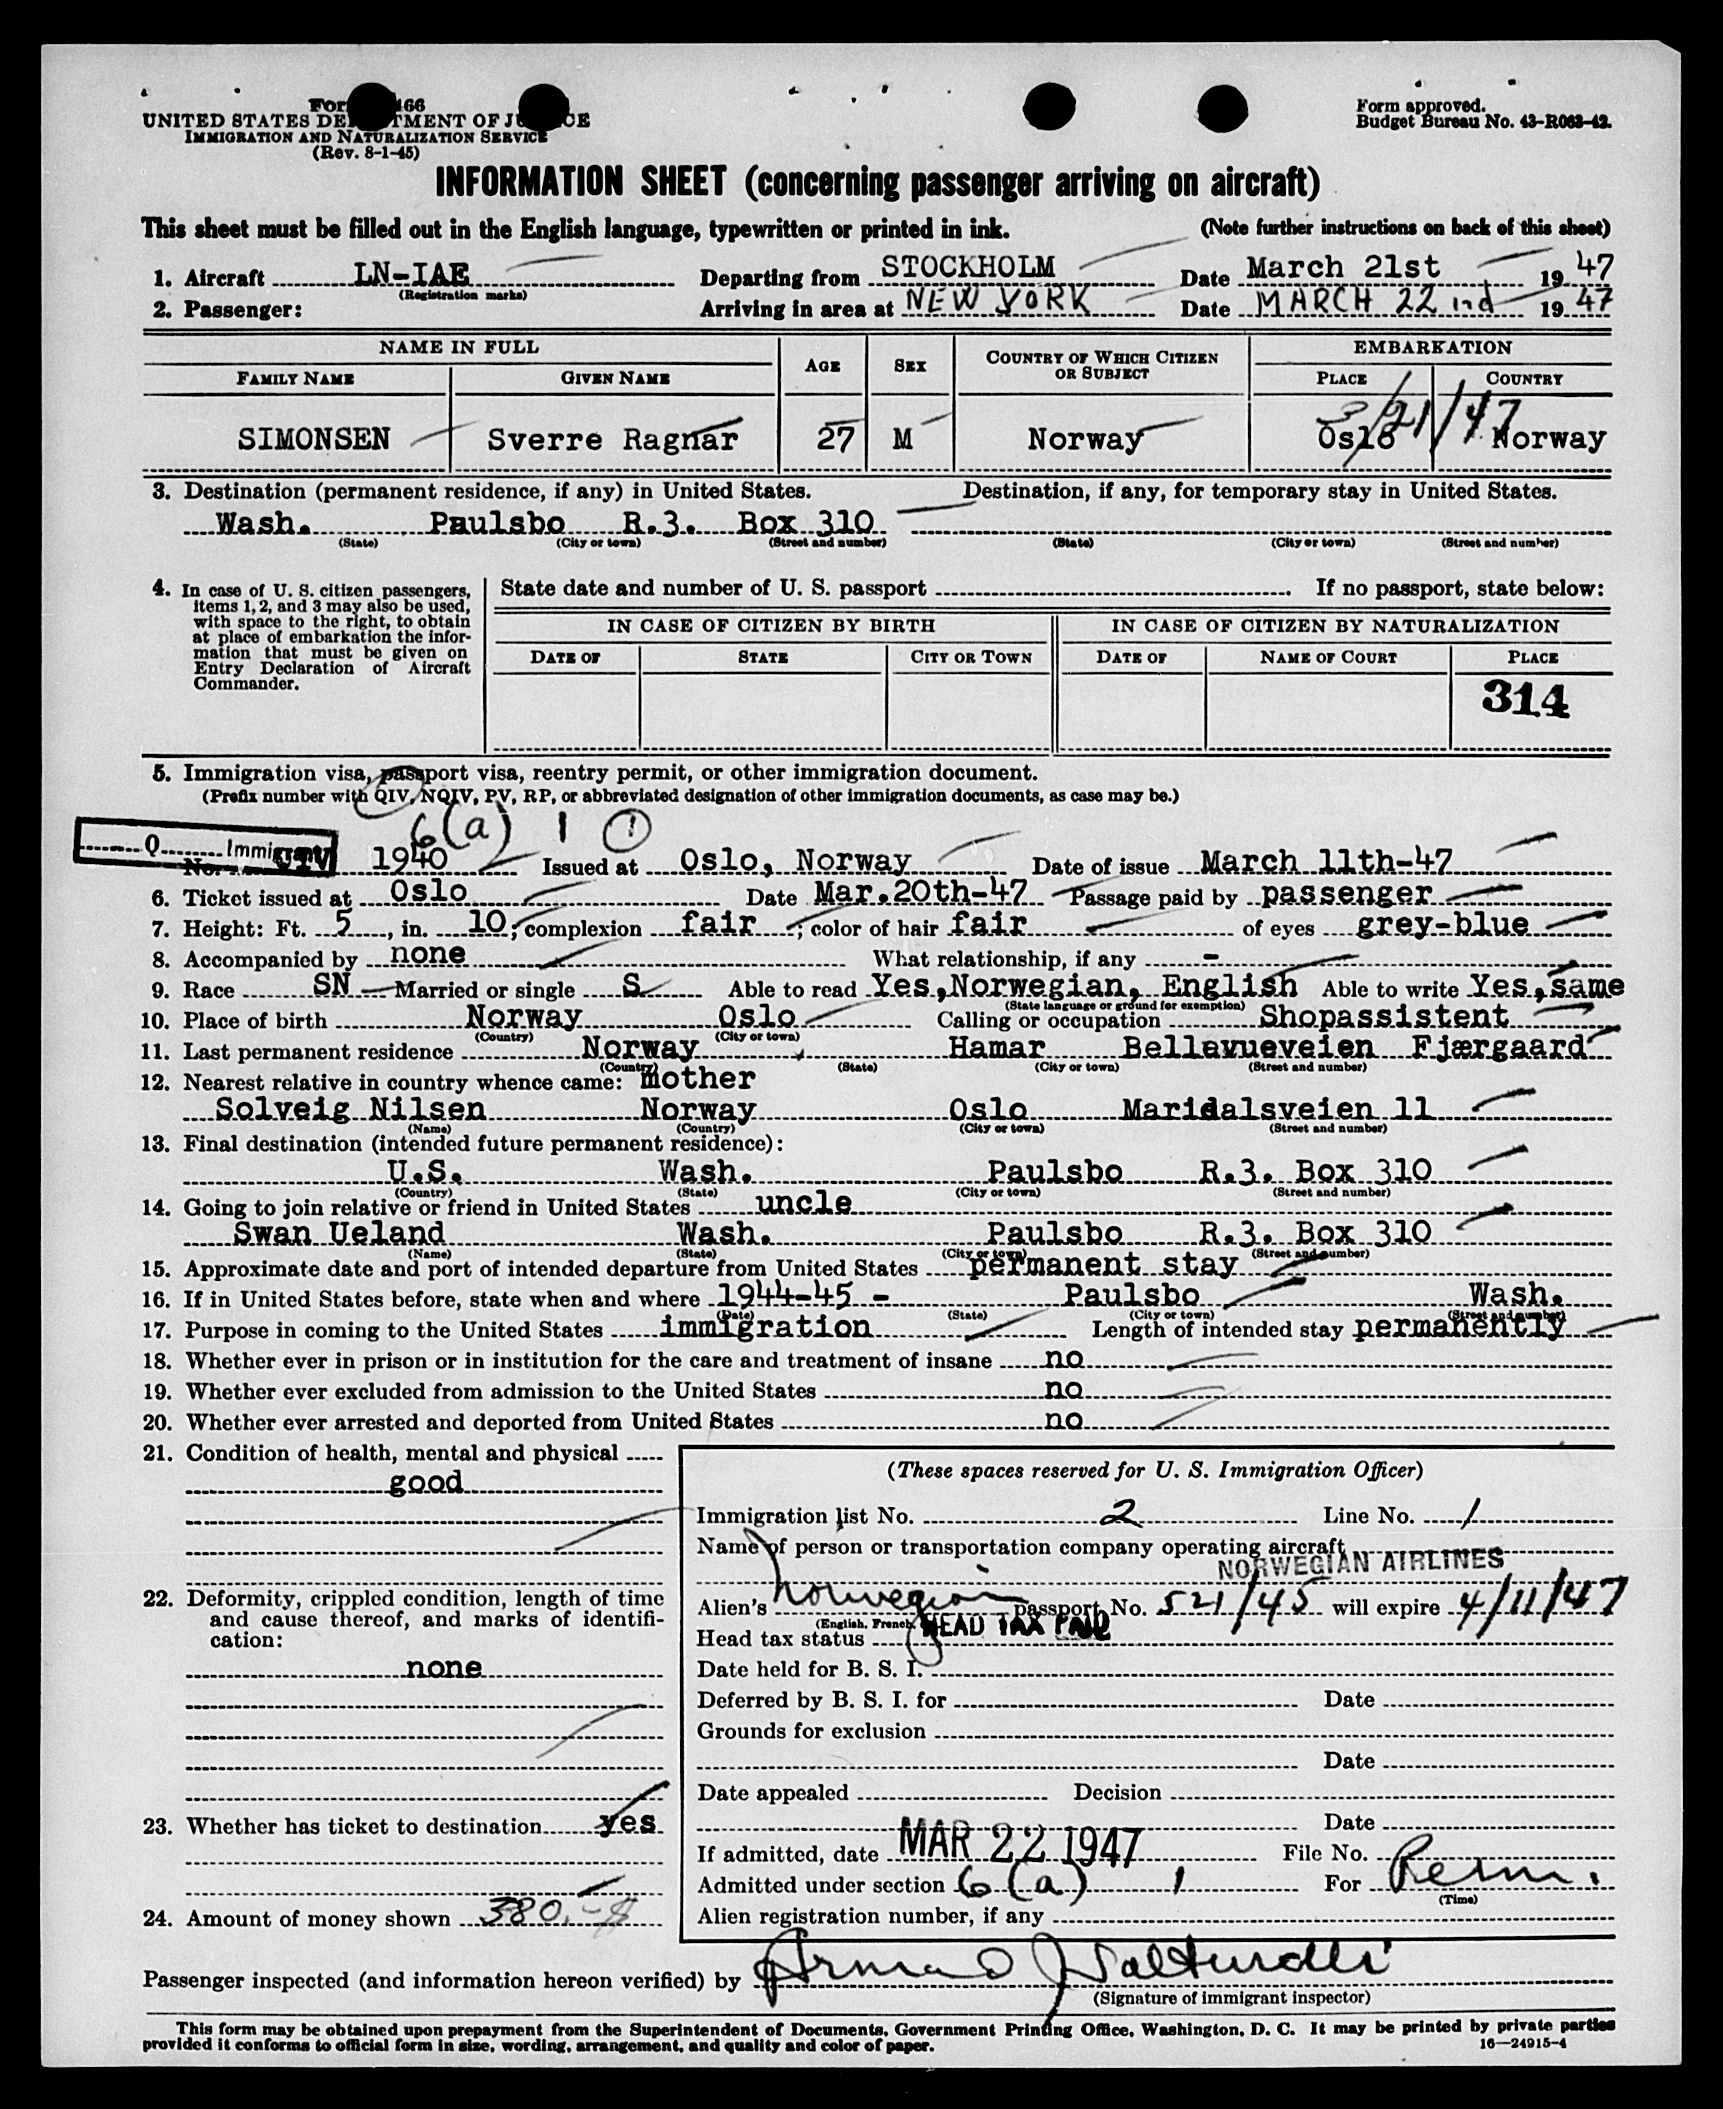 Form 166
UNITED STATES DEPARTMENT OF JUSTICE
IMMIGRATION AND NATURALIZATION SERVICE
(Rev. 8-1-45)
Form approved.
Budget Bureau No. 43-R063-42.
INFORMATION SHEET (concerning passenger arriving on aircraft)
This sheet must be filled out in the English language, typewritten or printed in ink. (Note further instructions on back of this sheet)
1. Aircraft LN-IAE Departing from STOCKHOLM Date March 21st 1947
(Registration marks)
2. Passenger: Arriving in area at NEW YORK Date MARCH 22nd 1947
NAME IN FULL AGE SEX COUNTRY OF WHICH CITIZEN OR SUBJECT EMBARKATION
FAMILY NAME GIVEN NAME PLACE COUNTRY
3/21/47
SIMONSEN Sverre Ragnar 27 M Norway Oslo Norway
3. Destination (permanent residence, if any) in United States. Destination, if any, for temporary stay in United States.
Wash. Paulsbo R.3. Box 310
(State) (City or town) (Street and number) (State) (City or town) (Street and number)
4. In case of U. S. citizen passengers, items 1, 2, and 3 may also be used, with space to the right, to obtain at place of embarkation the information that must be given on Entry Declaration of Aircraft Commander.
State date and number of U. S. passport If no passport, state below:
IN CASE OF CITIZEN BY BIRTH IN CASE OF CITIZEN BY NATURALIZATION
DATE OF STATE CITY OR TOWN DATE OF NAME OF COURT PLACE
314
5. Immigration visa, passport visa, reentry permit, or other immigration document.
(Prefix number with QIV, NQIV, PV, RP, or abbreviated designation of other immigration documents, as case may be.)
6(a) 1 1
Q Immigrant
No. QIV 1940 Issued at Oslo, Norway Date of issue March 11th-47
6. Ticket issued at Oslo Date Mar.20th-47 Passage paid by passenger
7. Height: Ft. 5, in. 10; complexion fair; color of hair fair of eyes grey-blue
8. Accompanied by none What relationship, if any -
9. Race SN Married or single S Able to read Yes,Norwegian, English Able to write Yes,same
(State language or ground for exemption)
10. Place of birth Norway Oslo Calling or occupation Shopassistent
(Country) (City or town)
11. Last permanent residence Norway Hamar Bellevueveien Fjærgaard
(Country) (State) (City or town) (Street and number)
12. Nearest relative in country whence came: mother
Solveig Nilsen Norway Oslo Maridalsveien 11
(Name) (Country) (City or town) (Street and number)
13. Final destination (intended future permanent residence):
U.S. Wash. Paulsbo R.3. Box 310
(Country) (State) (City or town) (Street and number)
14. Going to join relative or friend in United States uncle
Swan Ueland Wash. Paulsbo R.3. Box 310
(Name) (State) (City or town) (Street and number)
15. Approximate date and port of intended departure from United States permanent stay
16. If in United States before, state when and where 1944-45 - Paulsbo Wash.
(Date) (State) (City or town) (Street and number)
17. Purpose in coming to the United States immigration Length of intended stay permanently
18. Whether ever in prison or in institution for the care and treatment of insane no
19. Whether ever excluded from admission to the United States no
20. Whether ever arrested and deported from United States no
21. Condition of health, mental and physical
good
22. Deformity, crippled condition, length of time and cause thereof, and marks of identification:
none
23. Whether has ticket to destination yes
24. Amount of money shown 380.-$
(These spaces reserved for U. S. Immigration Officer)
Immigration list No. 2 Line No. 1
Name of person or transportation company operating aircraft
NORWEGIAN AIRLINES
Alien's Norwegian passport No. 521/45 will expire 4/11/47
(English, French,
Head tax status HEAD TAX PAID
Date held for B. S. I.
Deferred by B. S. I. for Date
Grounds for exclusion
Date
Date appealed Decision
Date
If admitted, date MAR 22 1947 File No.
Admitted under section 6(a) 1 For Perm.
(Time)
Alien registration number, if any
Passenger inspected (and information hereon verified) by
(Signature of immigrant inspector)
This form may be obtained upon prepayment from the Superintendent of Documents, Government Printing Office, Washington, D. C. It may be printed by private parties
provided it conforms to official form in size, wording, arrangement, and quality and color of paper. 16—24915-4